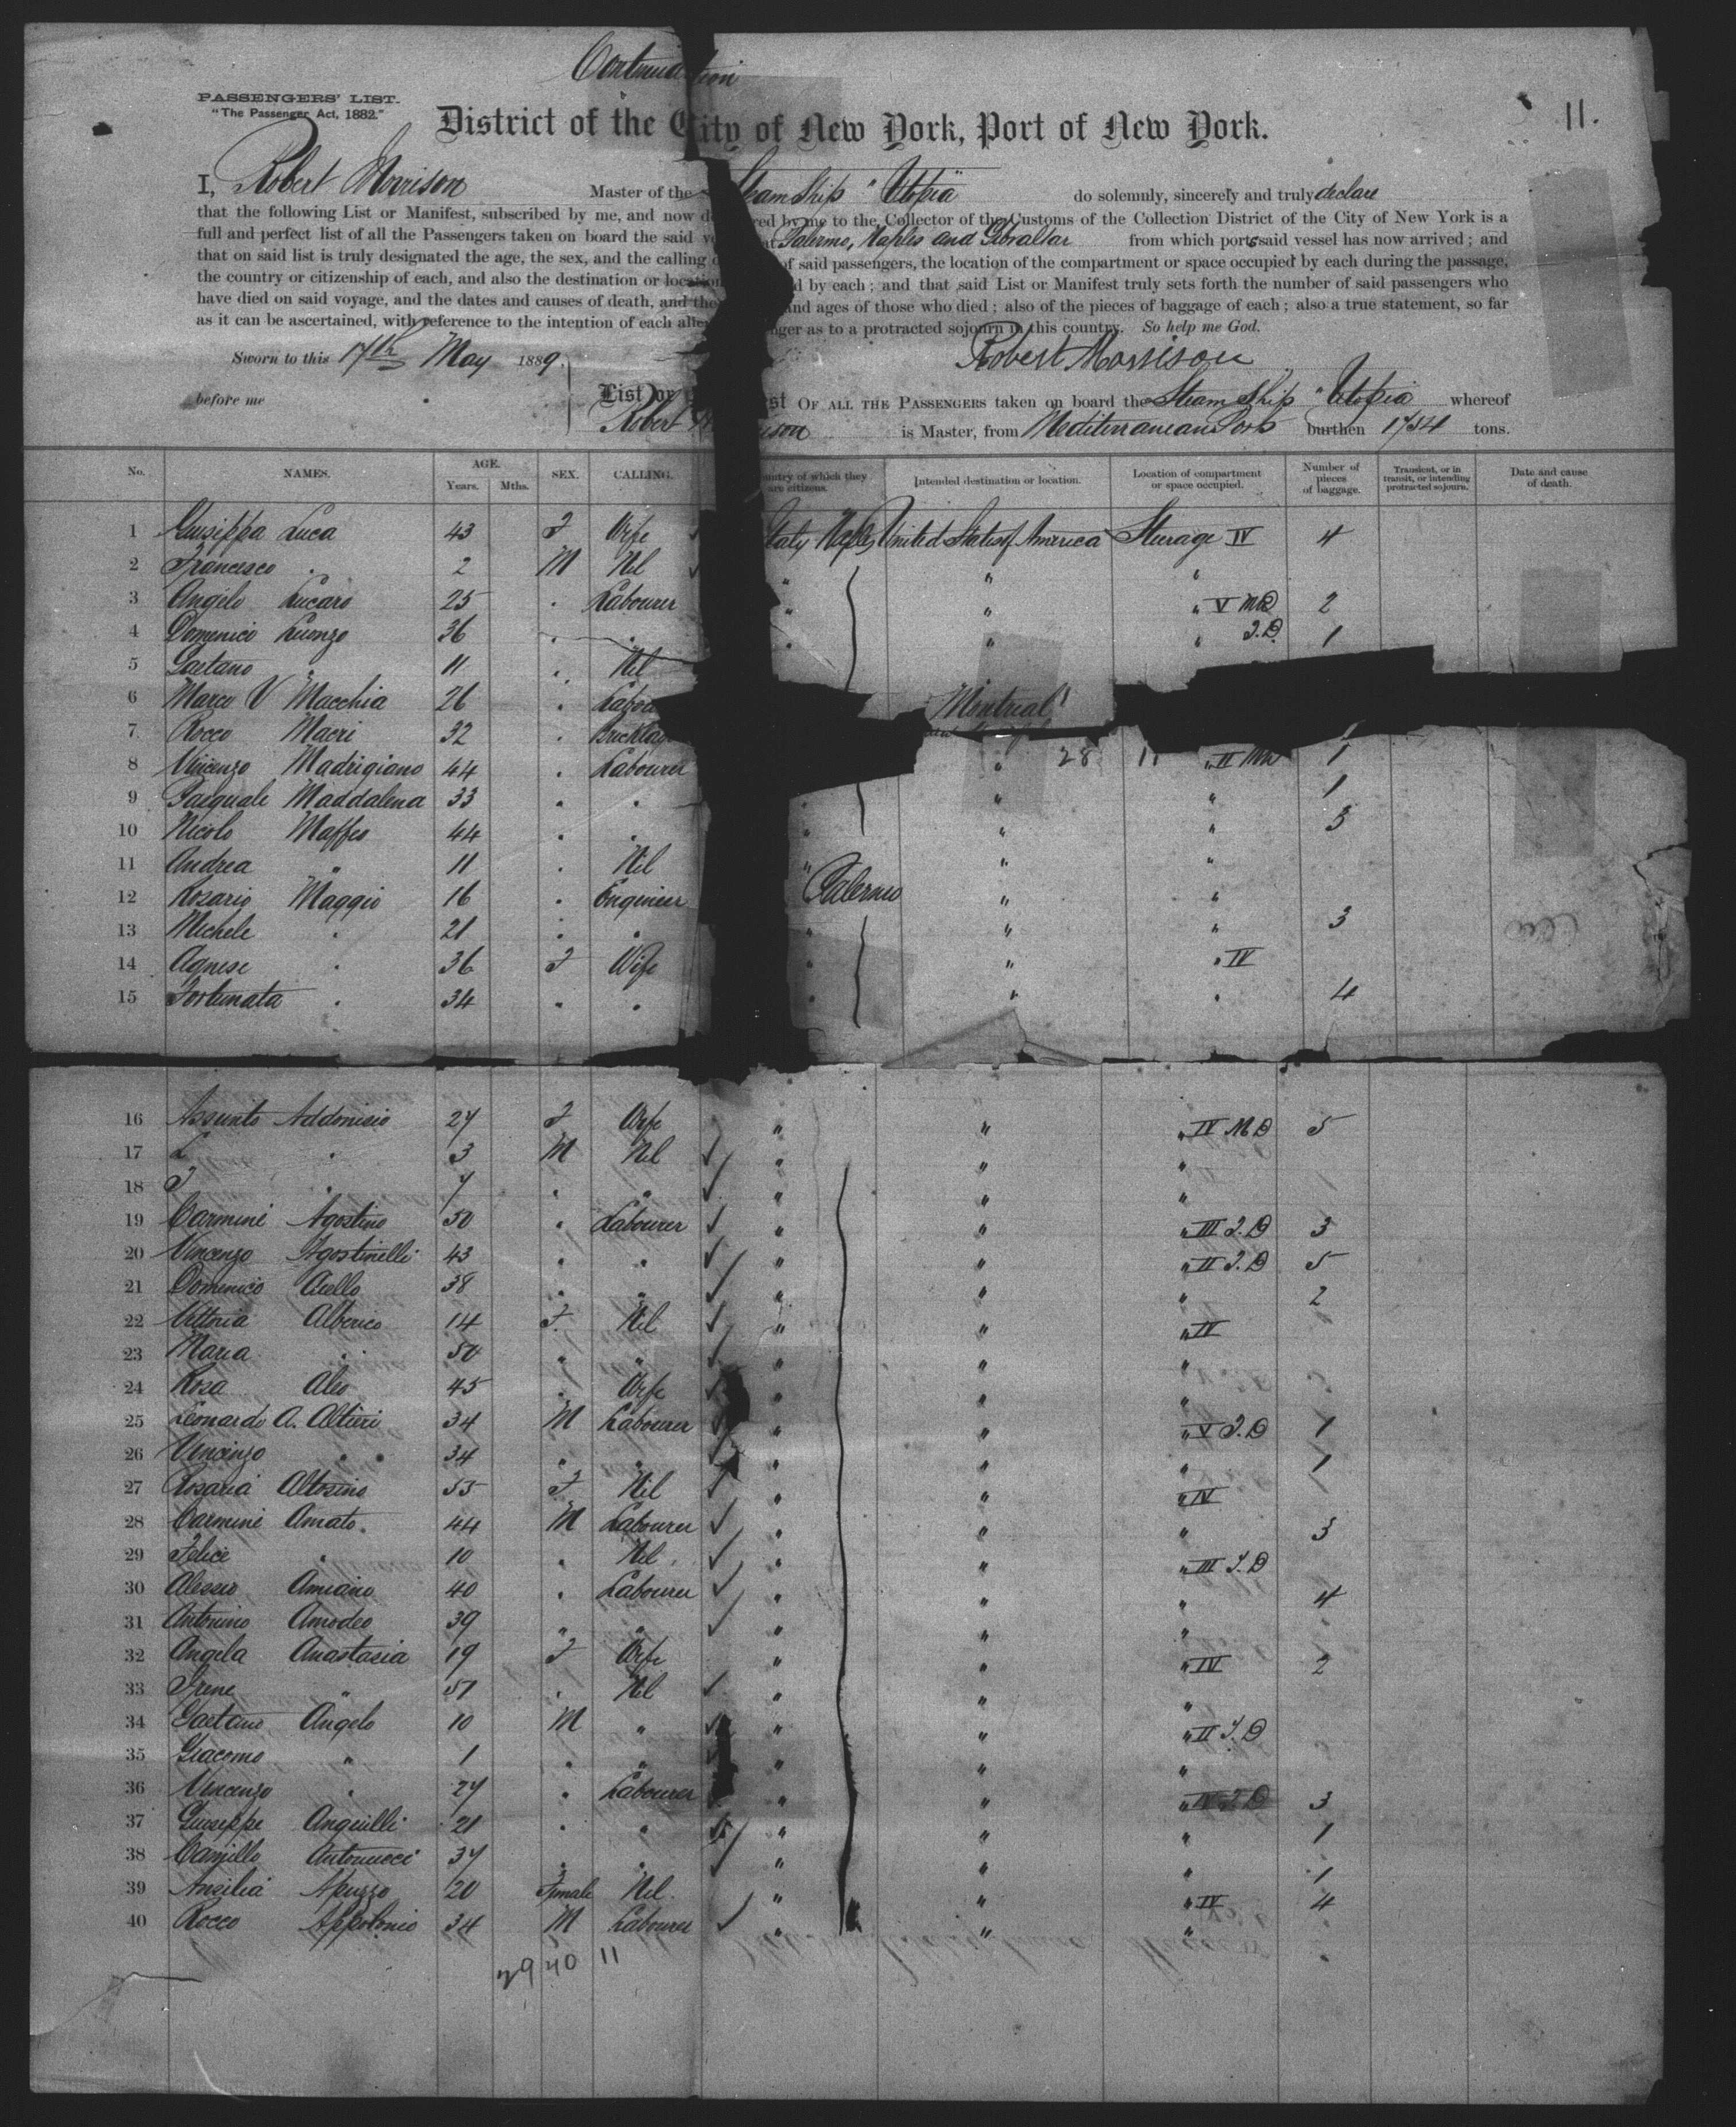 Continuation
PASSENGERS' LIST.
"The Passenger Act, 1882."
11.
District of the City of New York, Port of New York.
I, Robert Morrison Master of the Steam Ship "Utopia" do solemnly, sincerely and truly declare
that the following List or Manifest, subscribed by me, and now red by me to the Collector of the Customs of the Collection District of the City of New York is a
full and perfect list of all the Passengers taken on board the said at Palermo, Naples and Gibraltar from which ports said vessel has now arrived; and
that on said list is truly designated the age, the sex, and the calling of said passengers, the location of the compartment or space occupied by each during the passage,
the country or citizenship of each, and also the destination or location d by each; and that said List or Manifest truly sets forth the number of said passengers who
have died on said voyage, and the dates and causes of death, and the and ages of those who died; also of the pieces of baggage of each; also a true statement, so far
as it can be ascertained, with reference to the intention of each alien nger as to a protracted sojourn in this country. So help me God.
Sworn to this 17th May 1889. Robert Morrison
before me
List or st OF ALL THE PASSENGERS taken on board the Steam Ship "Utopia" whereof
Robert Morrison is Master, from Mediterranean Ports burthen 1754 tons.
No. NAMES. AGE. Years. Mths. SEX. CALLING. Country of which they are citizens. Intended destination or location. Location of compartment or space occupied. Number of pieces of baggage. Transient, or in transit, or intending protracted sojourn. Date and cause of death.
1 Guiseppa Luca 43 F Wife Italy Naples United States of America Steerage IV 4
2 Francesco . 2 M Nil " " "
3 Angelo Lucaro 25 . Labourer " " " V MD 2
4 Domenico Luongo 36 . . " " " T.D. 1
5 Gaetano " 11 . Nil
6 Marco V Macchia 26 . Labou Montreal
7 Rocco Macri 32 . Bricklay
8 Vincenzo Madrigiano 44 . Labourer " 28 11 " II MD 1
9 Pasquale Maddalena 33 . . " " " 1
10 Nicolo Maffeo 44 . . " " " 3
11 Andrea " 11 . Nil " " "
12 Rosario Maggio 16 . Engineer Palermo " "
13 Michele . 21 . . " " " 3
14 Agnese . 36 F Wife " " " IV
15 Fortunata . 34 . . " " . 4
16 Assunto Addonisio 27 F Wife " " " IV M D 5
17 L . 3 M Nil " " "
18 F . 7 . " " " "
19 Carmine Agostino 50 . Labourer " " " III T.D 3
20 Vincenzo Agostinelli 43 . . " " " II T.D 5
21 Domenico Aiello 38 . " " " " 2
22 Vittoria Alberico 14 F. Nil " " " IV
23 Maria . . 50 " " " " "
24 Rosa Aleo 45 . Wife " " "
25 Leonardo A. Altieri 34 M Labourer " " " V T.D 1
26 Vincenzo . . 34 . . " " " 1
27 Rosaria Altosino 55 F Nil " " " IV
28 Carmine Amato. 44 M Labourer " " " 3
29 Felice . 10 . Nil . " " III T.D
30 Alessio Amiano 40 . Labourer " " " 4
31 Antonino Amodeo 39 " " " " "
32 Angela Anastasia 19 F Wife " " " IV 2
33 Irene " 51 . Nil " " "
34 Gaetano Angelo 10 M " " " " II T.D
35 Giacomo " 1 . " " " "
36 Vincenzo " 27 . Labourer " " " IV T D 3
37 Giuseppe Anguilli 21 . " " " " 1
38 Camillo Antonucci 37 . " " " " 1
39 Ansilia Apuzzo 20 Female Nil. " " " IV 4
40 Rocco Appolonio 34 M Labourer " " "
29 40 11